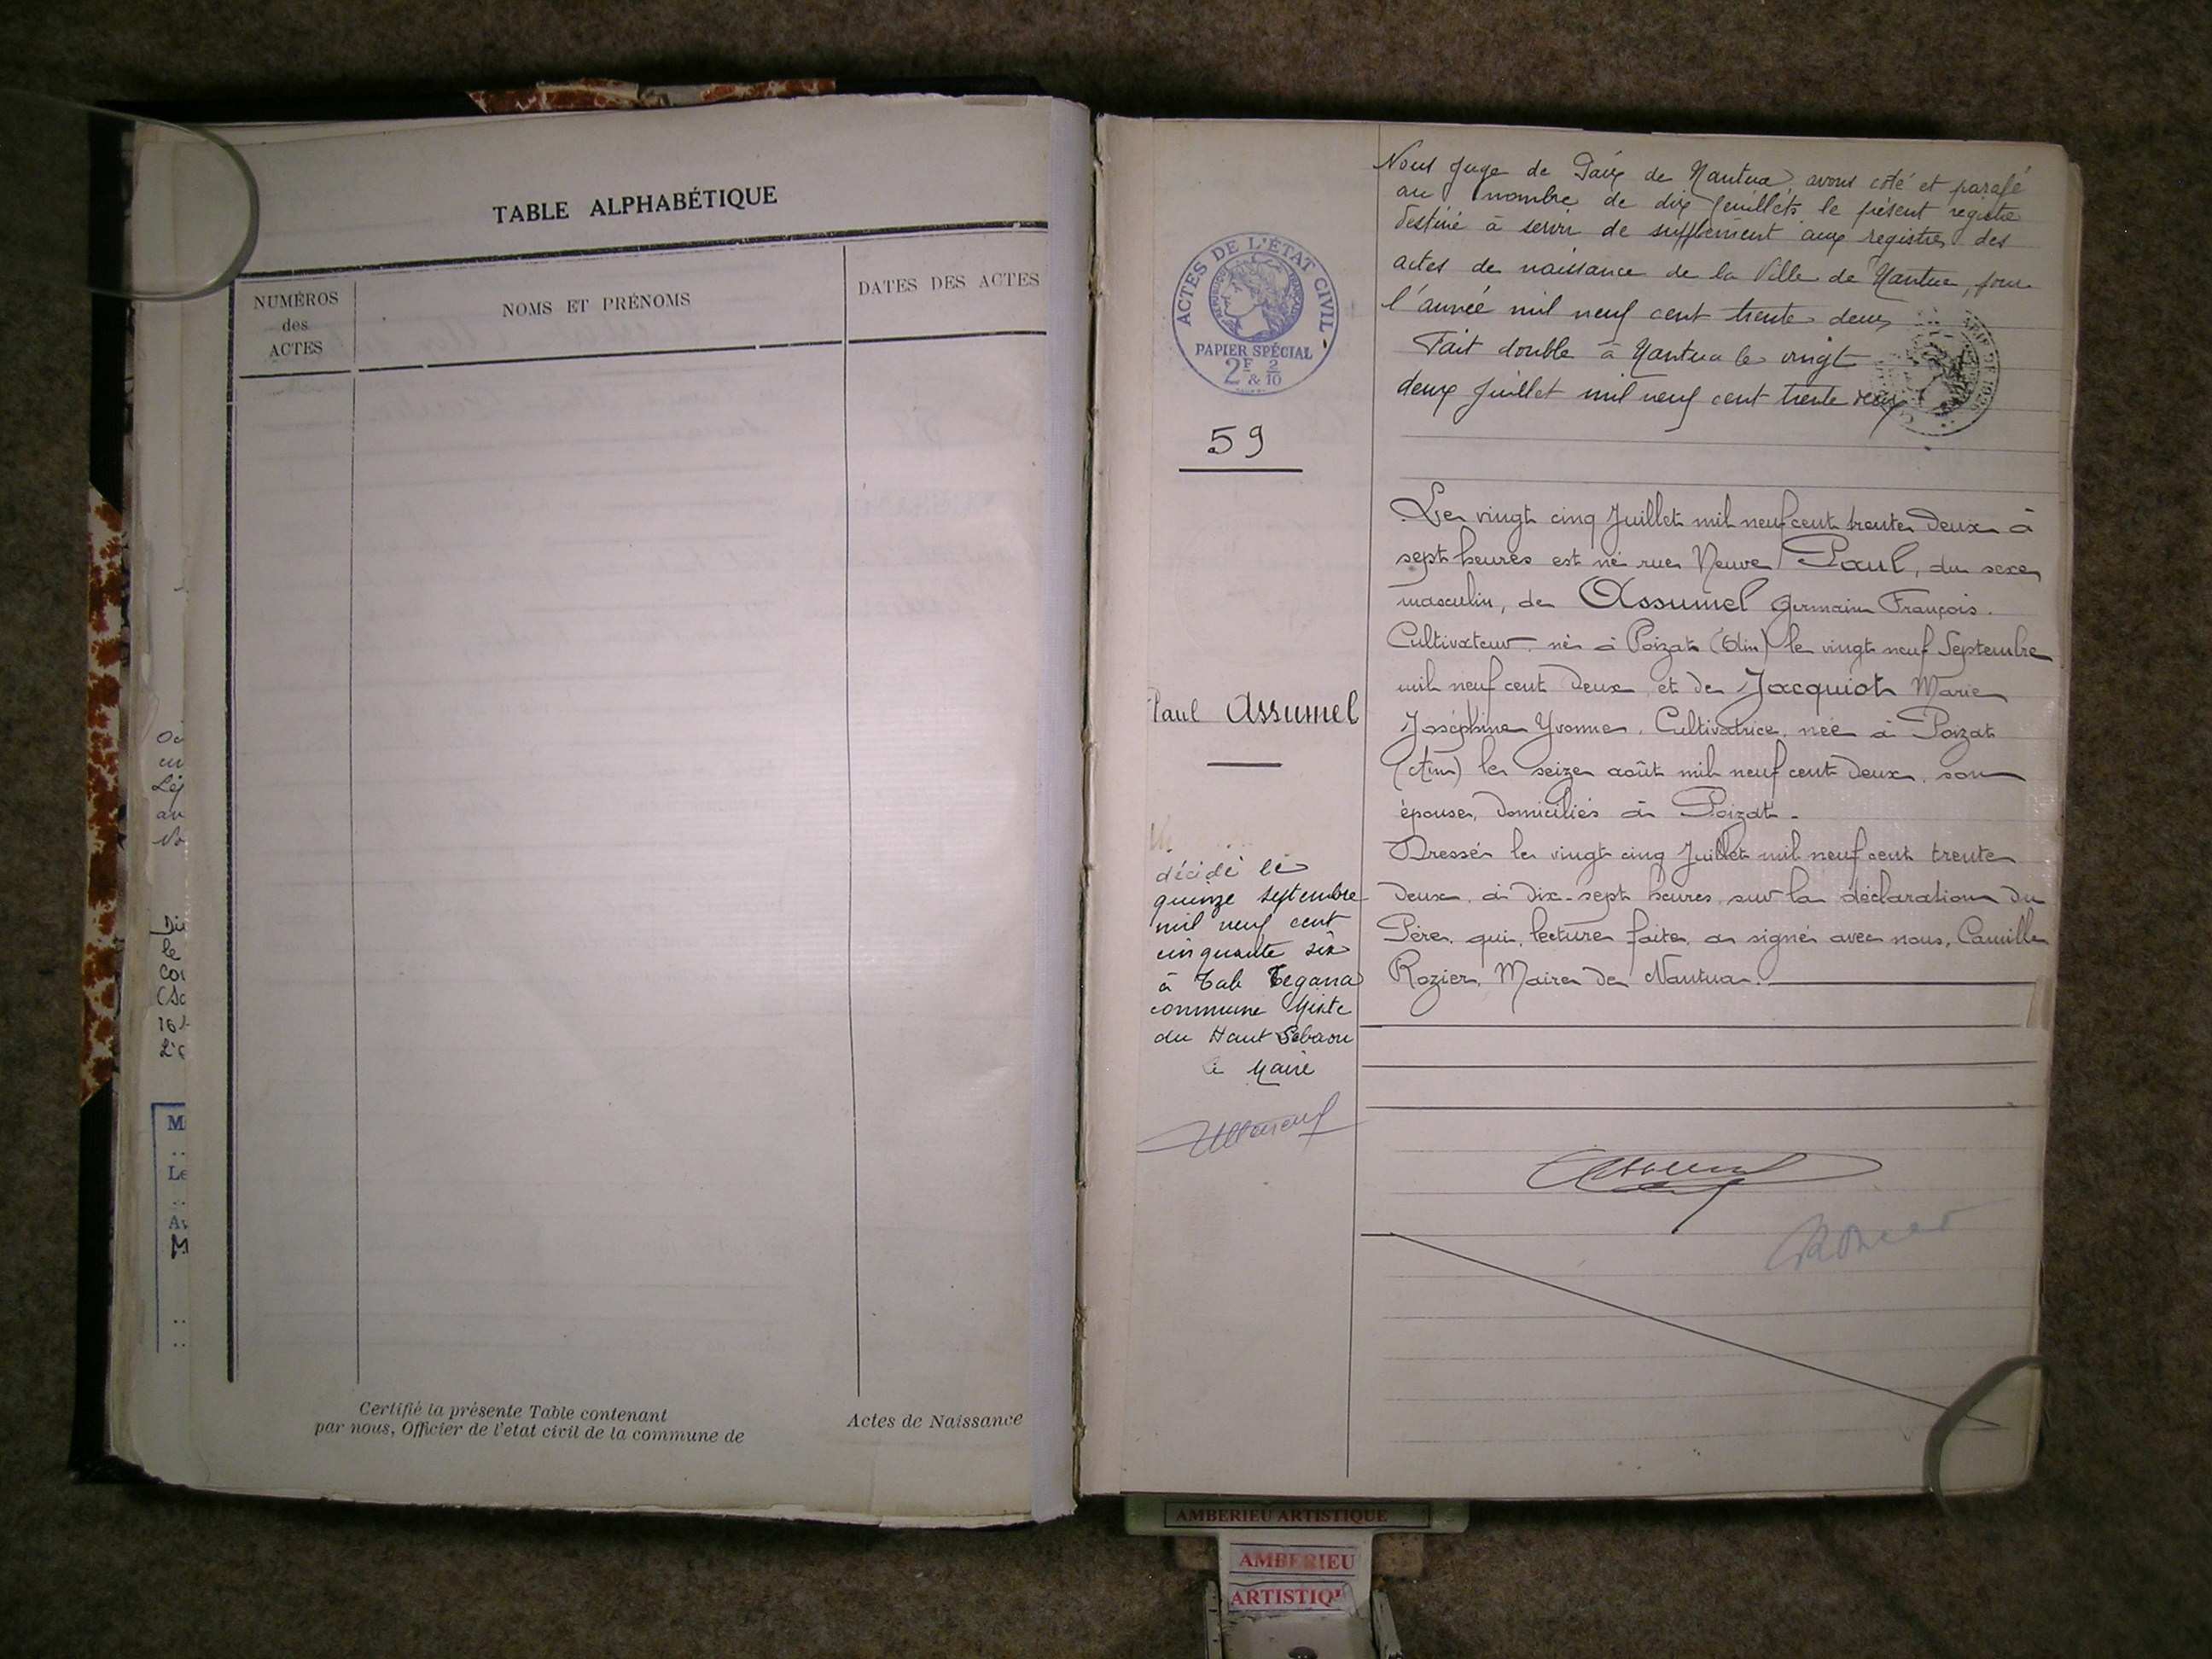 TABLE ALPHABÉTIQUE
NUMÉROS
des
ACTES
NOMS ET PRÉNOMS
DATES DES ACTES
Certifié la présente Table contenant
Actes de Naissance
par nous, Officier de l'état civil de la commune de
Nous Juge de Paix de Nantua avons coté et parafé
au nombre de dix feuillets le présent registre
destiné à servir de supplément aux registres des
actes de naissance de la Ville de Nantua, pour
l'année mil neuf cent trente deux
Fait double à Nantua le vingt
deux Juillet mil neuf cent trente deux
ACTES DE L'ÉTAT CIVIL
PAPIER SPÉCIAL
2F & 2/10
59
Le vingt cinq Juillet mil neuf cent trente deux à
sept heures est né rue Neuve Paul, du sexe
masculin, de Assumel Germain François
Cultivateur, né à Poizat (Ain) le vingt neuf Septembre
mil neuf cent deux, et de Jacquiot Marie
Joséphine Yvonne, Cultivatrice, née à Poizat
(Ain) le seize août mil neuf cent deux, son
épouse, domiciliés à Poizat.
Dressé le vingt cinq Juillet mil neuf cent trente
deux, à dix-sept heures, sur la déclaration du
Père, qui, lecture faite, a signé avec nous, Camille
Rozier, Maire de Nantua.
Paul Assumel
décédé le
quinze septembre
mil neuf cent
cinquante six
à Tab Tegana
commune Mixte
du Haut Sebaou
le Maire
Assumel
Rozier
M
Le
AMBERIEU ARTISTIQUE
AMBERIEU
ARTISTIQU